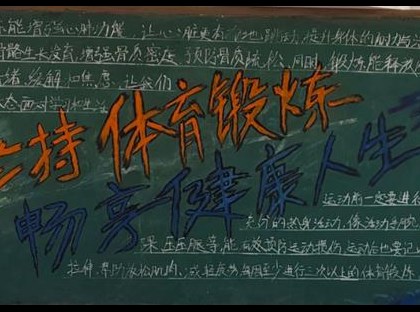 能增强心肺功能 让心脏更有力地跳动,提升身体的耐力与
骨骼生长发育,增强骨质密度,预防骨质疏松,同时,锻炼能释放
绪,缓解 焦虑,让我们
态面对学习和生活
持体育锻炼
畅享健康人生
运动前一定要进行
充分的热身活动,像活动手腕
踝 压压腿等,能有效预防运动损伤,运动后也要记
拉伸,帮助放松肌肉, 每周至少进行三次以上的体育锻炼